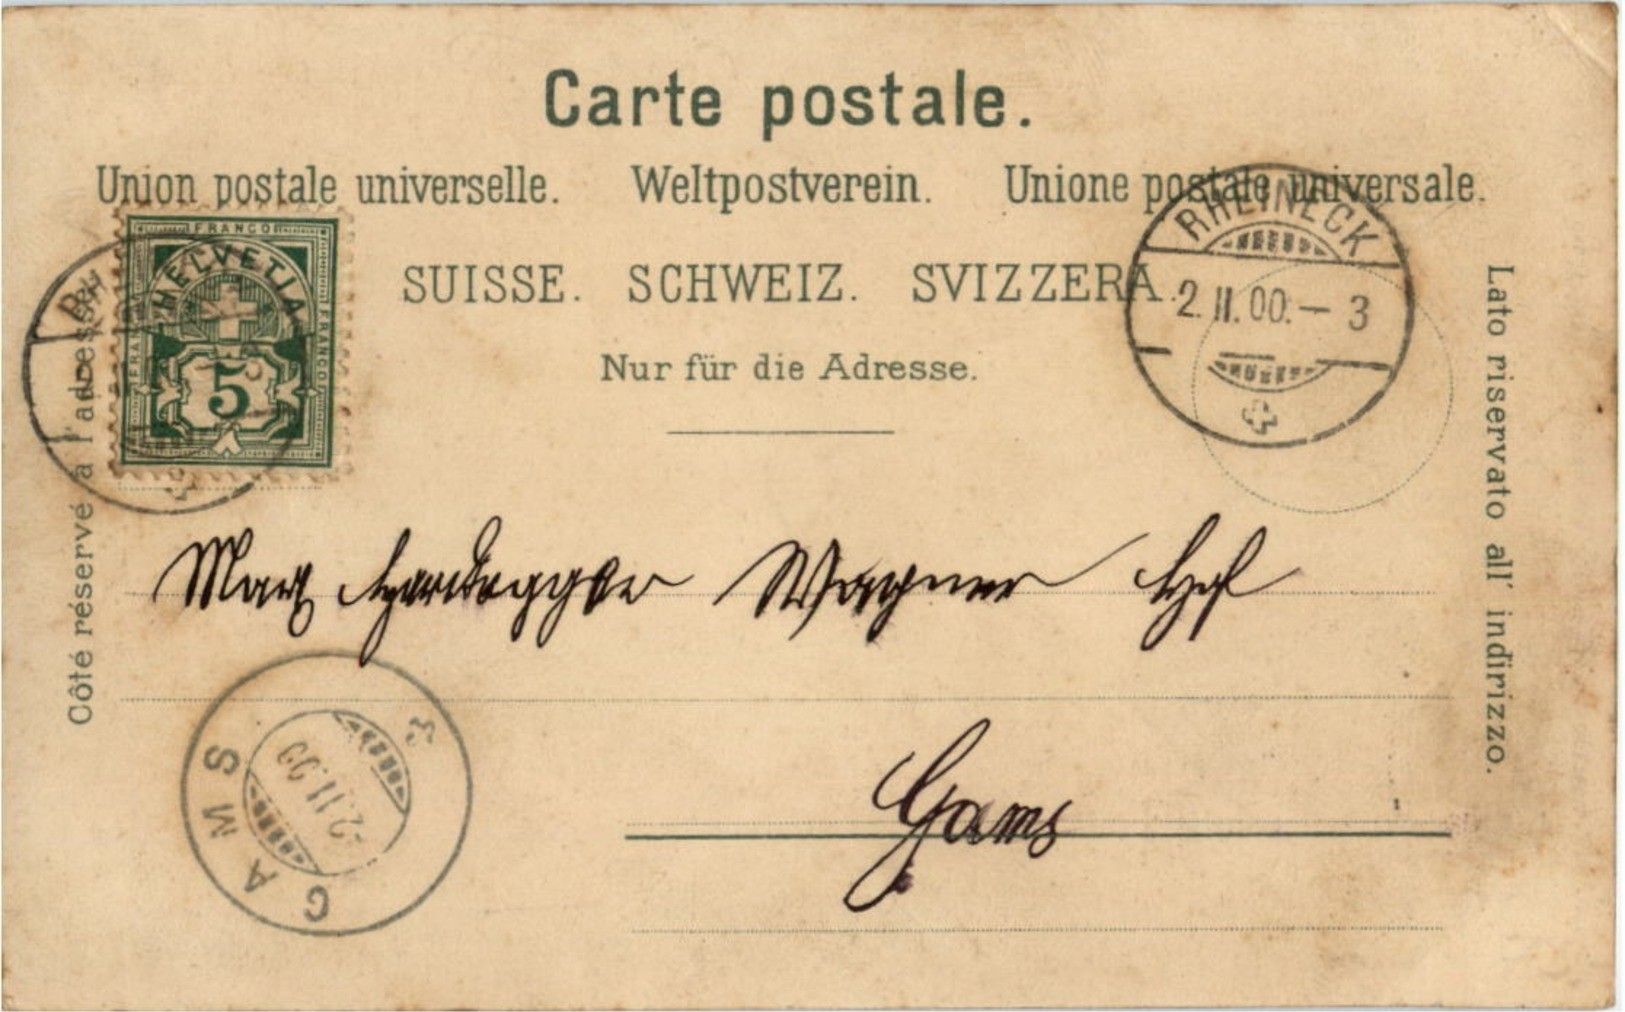 Carte postale.
Union postale universelle. Weltpostverein. Unione postale universale.
SUISSE. SCHWEIZ. SVIZZERA.
Nur für die Adresse.
Côté réservé à l'adresse.
Lato riservato all' indirizzo.
FRANCO
HELVETIA
FRANCO
FRANCO
5
RH
RHEINECK
2.II.00.-3
Wagner
Gams
GAMS
2.II.00